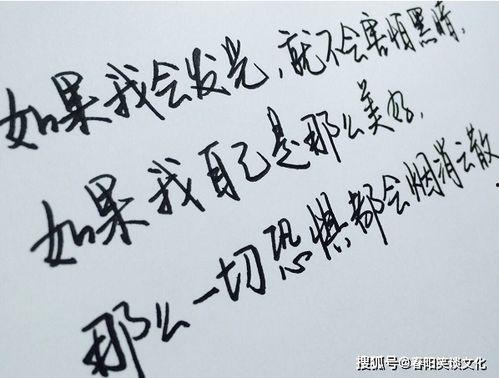 如果我会发光，就不会害怕黑暗，
如果我自己是那么美好，
那么一切恐惧都会烟消云散.
搜狐号@春阳笑谈文化